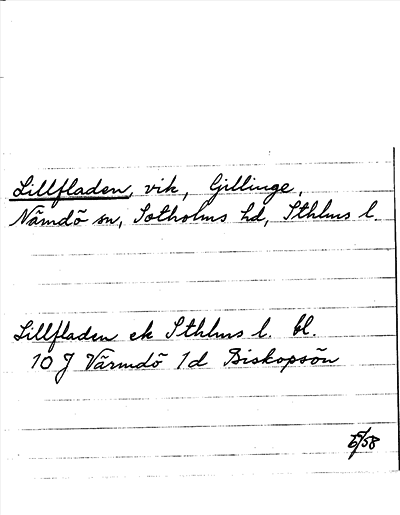 Lillfladen, vik, Gillinge,
Nämdö sn, Sotholms hd, Sthlms l.
Lillfladen ek Sthlms l. bl.
10 J Värmdö 1d Biskopsön
/58